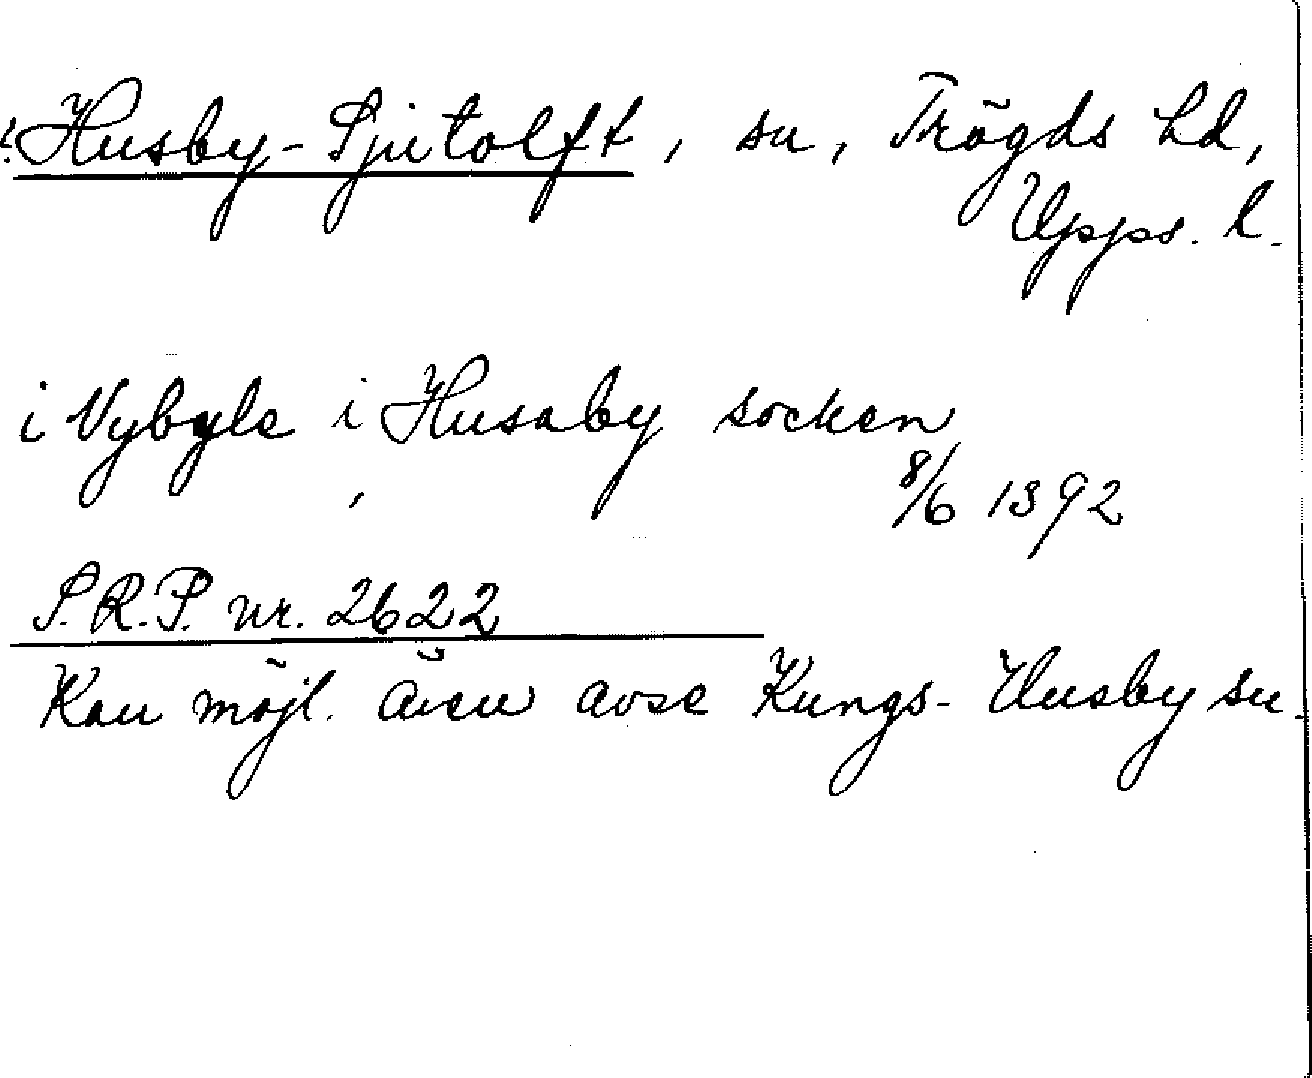 ? Husby-Sjutolft, sn, Trögds hd,
Upps. l.
i Vybyle i Husaby socken
8/6 1392
S.R.P. nr. 2622
Kan möjl. även avse Kungs-Husby sn.